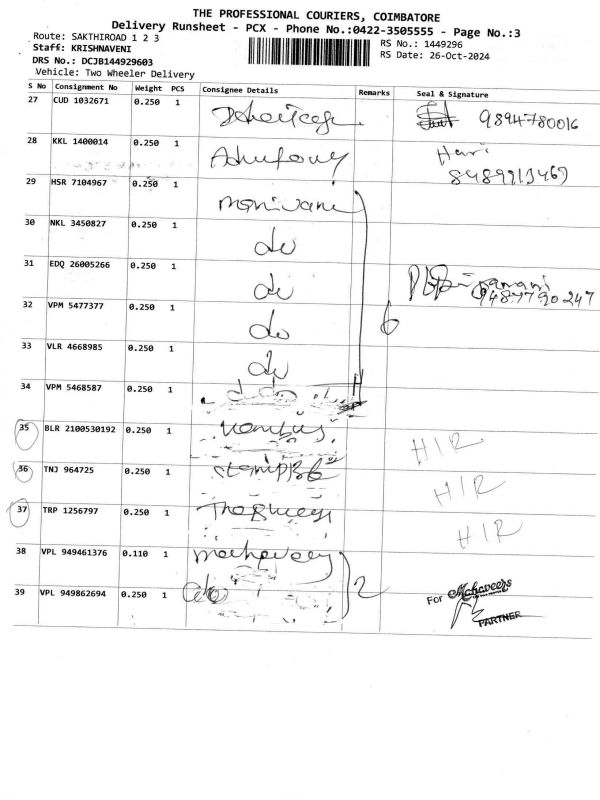 THE PROFESSIONAL COURIERS, COIMBATORE
Delivery Runsheet - PCX - Phone No.:0422-3505555 - Page No.:3
Route: SAKTHIROAD 1 2 3
RS No.: 1449296
Staff: KRISHNAVENI
RS Date: 26-Oct-2024
DRS No.: DCJB144929603
Vehicle: Two Wheeler Delivery
S No Consignment No Weight PCS Consignee Details Remarks Seal & Signature
27 CUD 1032671 0.250 1 9894780016
28 KKL 1400014 0.250 1 Hari
8489913469
29 HSR 7104967 0.250 1 monivani
30 NKL 3450827 0.250 1 do
31 EDQ 26005266 0.250 1 do
9487790247
32 VPM 5477377 0.250 1 do 6
33 VLR 4668985 0.250 1 do
34 VPM 5468587 0.250 1
35 BLR 2100530192 0.250 1 HIR
36 TNJ 964725 0.250 1 HIR
37 TRP 1256797 0.250 1 HIR
38 VPL 949461376 0.110 1
39 VPL 949862694 0.250 1 do 2
For Mahaveers
PARTNER